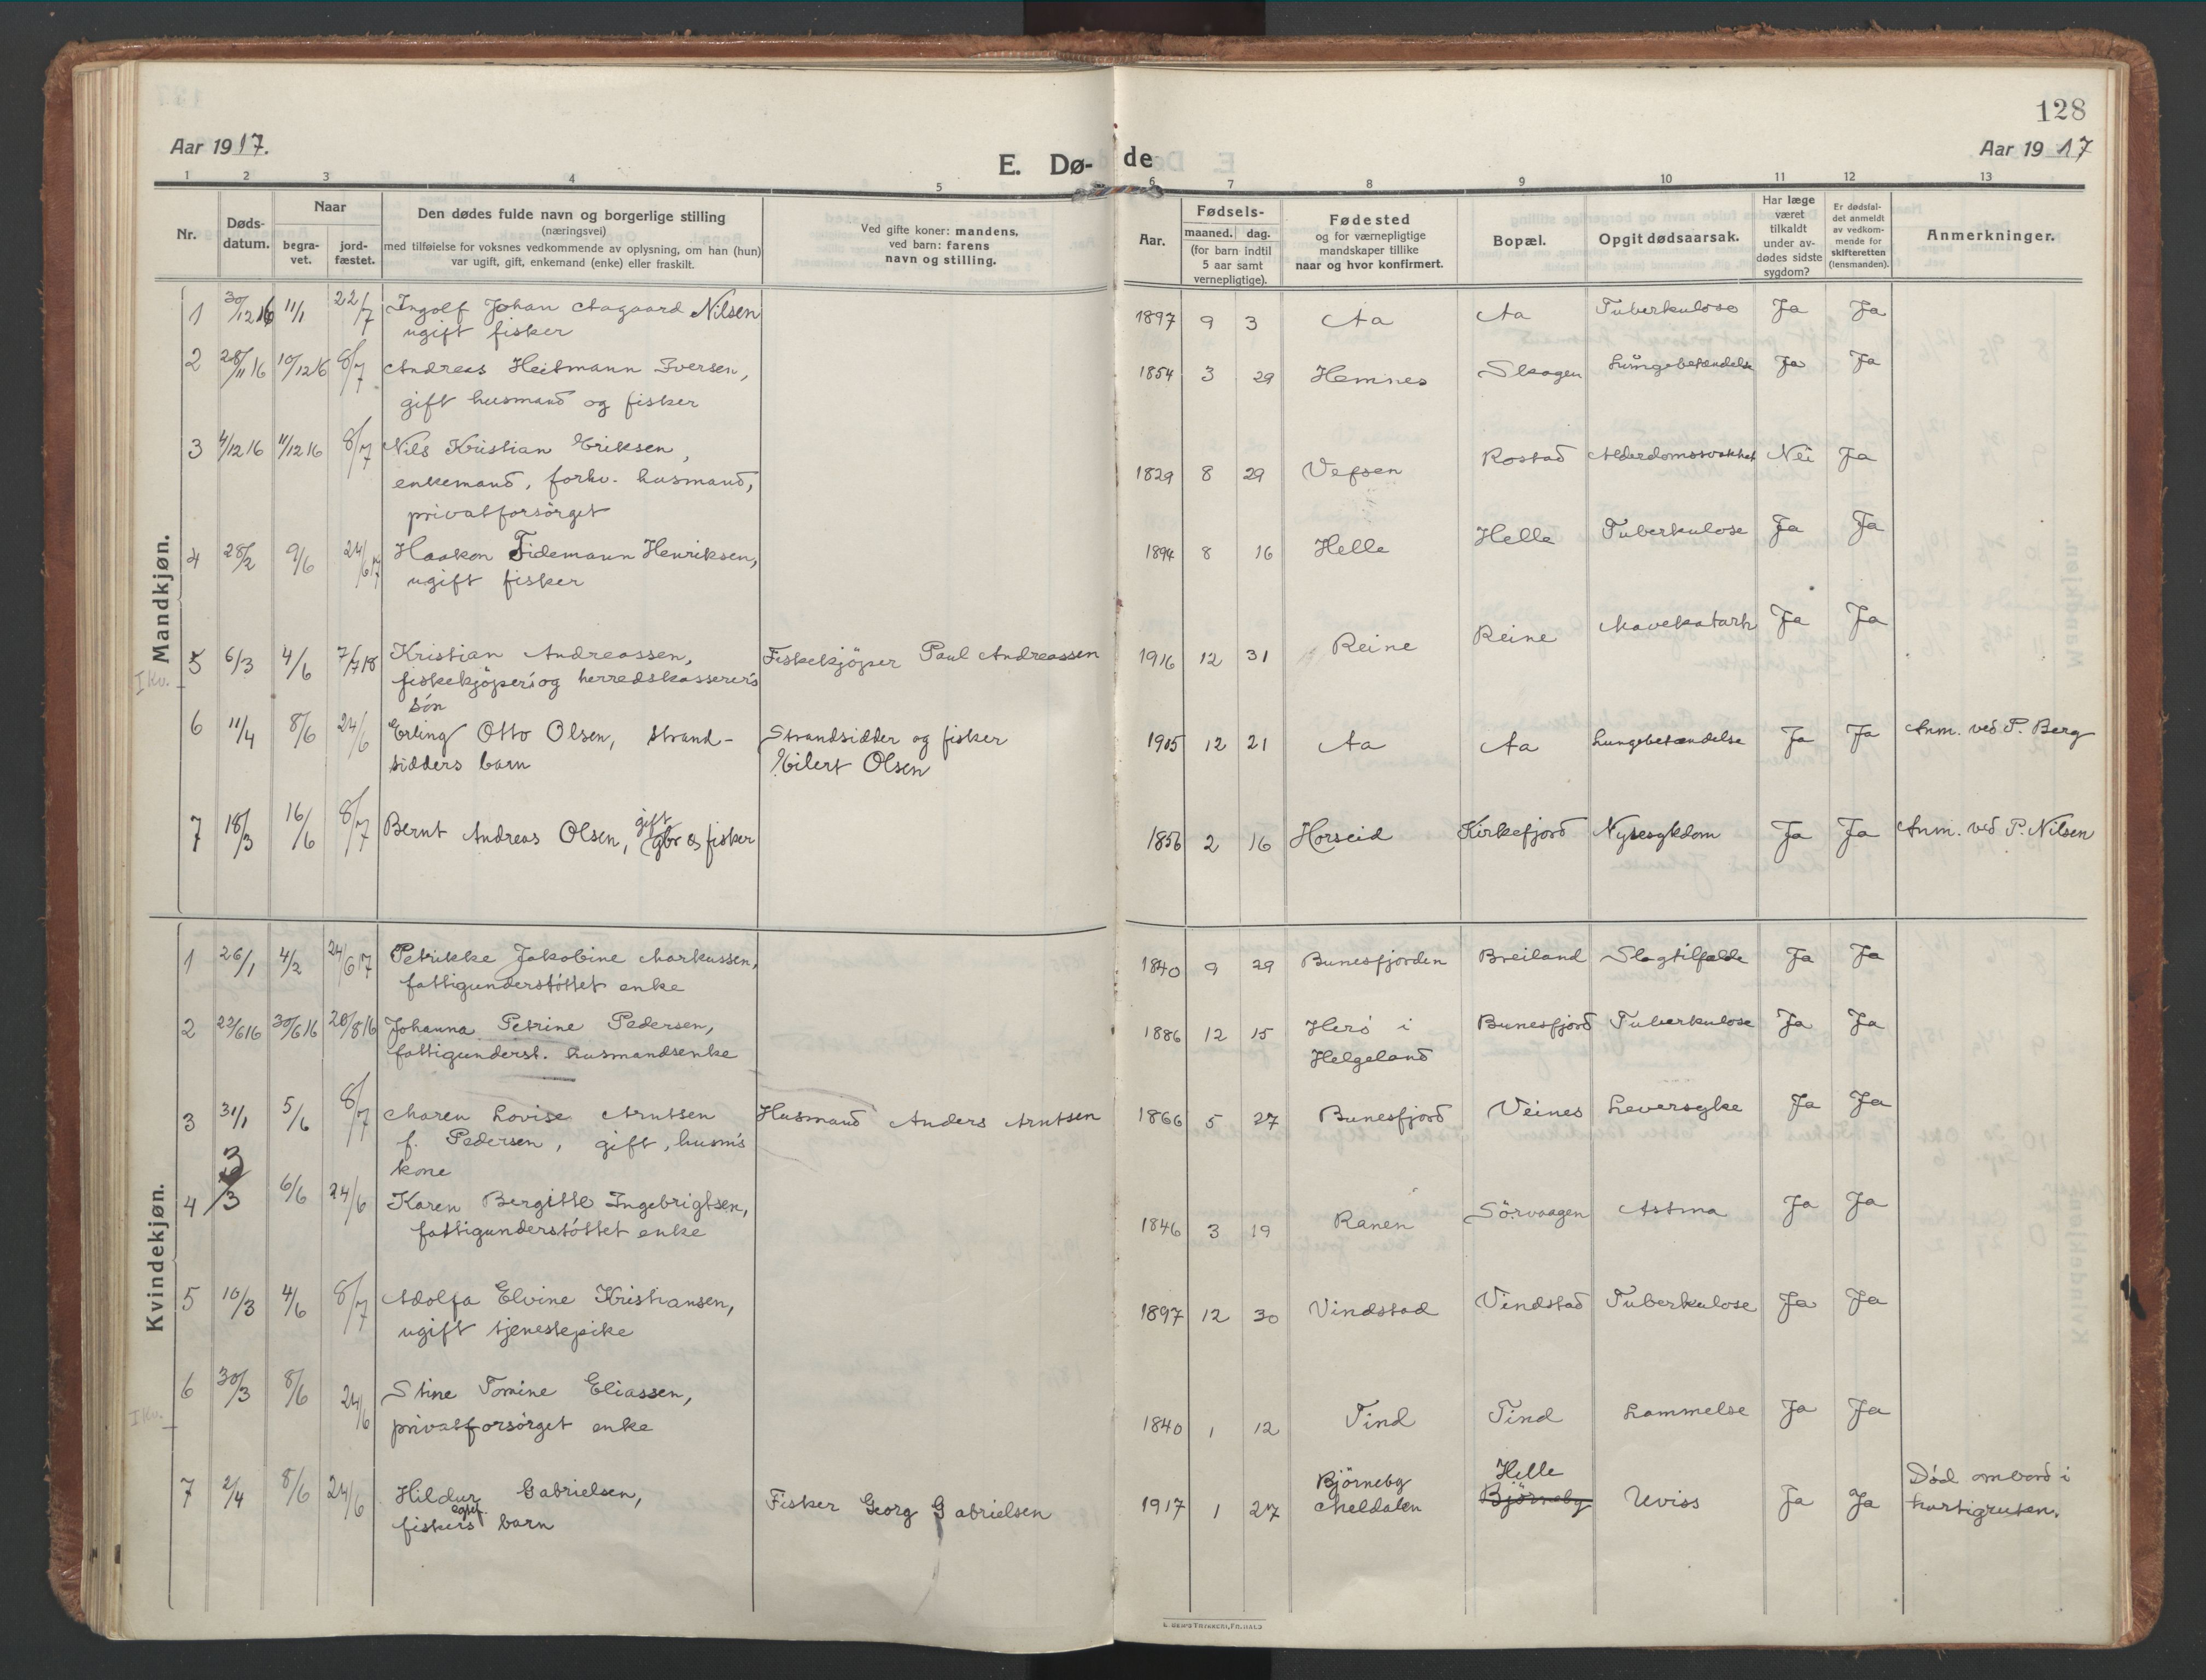 128
Aar 1917.
E. Dø-
de
Aar 1917
1 2 3 4 5 6 7 8 9 10 11 12 13
Nr.
Døds-
datum.
Naar
begra-
vet.
jord-
fæstet.
Den dødes fulde navn og borgerlige stilling
(næringsvei)
med tilføielse for voksnes vedkommende av oplysning, om han (hun)
var ugift, gift, enkemand (enke) eller fraskilt.
Ved gifte koner: mandens,
ved barn: farens
navn og stilling.
Aar.
Fødsels-
maaned. dag.
(for barn indtil
5 aar samt
vernepligtige).
Fødested
og for værnepligtige
mandskaper tillike
naar og hvor konfirmert.
Bopæl.
Opgit dødsaarsak.
Har læge
været
tilkaldt
under av-
dødes sidste
sygdom?
Er dødsfal-
det anmeldt
av vedkom-
mende for
skifteretten
(lensmanden).
Anmerkninger.
Mandkjøn.
1 30/12 16 11/1 22/7 Ingolf Johan Aagaard Nilsen 1897 9 3 Aa Aa Tuberkulose Ja Ja
ugift fisker
2 28/11 16 10/12 16 8/7 Andreas Heitmann Iversen, 1854 3 29 Hemnes Skagen Lungebetændelse Ja Ja
gift husmand og fisker
3 4/12 16 11/12 16 8/7 Nils Kristian Eriksen, 1829 8 29 Vefsen Rostad Alderdomssvakhet Nei Ja
enkemand, forhv. husmand,
privatforsörget
4 28/2 9/6 24/6 17 Haakon Tidemann Henriksen, 1894 8 16 Helle Helle Tuberkulose Ja Ja
ugift fisker
5 6/3 4/6 7/7 18 Kristian Andreassen, Fiskekjöper Paul Andreassen 1916 12 31 Reine Reine Mavekatarh Ja Ja
I Kv.
fiskekjöper's og herredskasserer's
sön
6 11/4 8/6 24/6 Erling Otto Olsen, strand- Strandsidder og fisker 1905 12 21 Aa Aa Lungebetændelse Ja Ja Anm. ved P. Berg
sidders barn Eilert Olsen
7 18/3 16/6 8/7 Bernt Andreas Olsen, gift gbr og fisker 1856 2 16 Horseid Kirkefjord Nyresykdom Ja Ja Anm. ved P. Nilsen
Kvindekjøn.
1 26/1 4/2 24/6 17 Petrikke Jakobine Markussen, 1840 9 29 Bunesfjorden Breiland Slagtilfælde Ja Ja
fattigunderstöttet enke
2 22/6 16 30/6 16 20/8 16 Johanna Petrine Pedersen, 1886 12 15 Herö i Bunesfjord Tuberkulose Ja Ja
fattigunderst. husmandsenke Helgeland
3 31/1 5/6 8/7 Maren Lovise Arntsen Husmand Anders Arntsen 1866 5 27 Bunesfjord Veines Leversyke Ja Ja
f. Pedersen, gift, husm's
kone
4 3/3 6/6 24/6 Karen Bergitte Ingebrigtsen, 1846 3 19 Ranen Sörvaagen Astma Ja Ja
fattigunderstöttet enke
5 10/3 4/6 8/7 Adolfa Elvine Kristiansen, 1897 12 30 Vindstad Vindstad Tuberkulose Ja Ja
ugift tjenestepike
6 30/3 8/6 24/6 Stine Tomine Eliassen, 1840 1 12 Tind Tind Lammelse Ja Ja
I Kv.
privatforsörget enke
7 2/4 8/6 24/6 Hildur Gabrielsen, Fisker Georg Gabrielsen 1917 1 27 Björneby Meldalen Helle Björneby Uviss Ja Ja Död ombord i
fiskers barn hurtigruten.